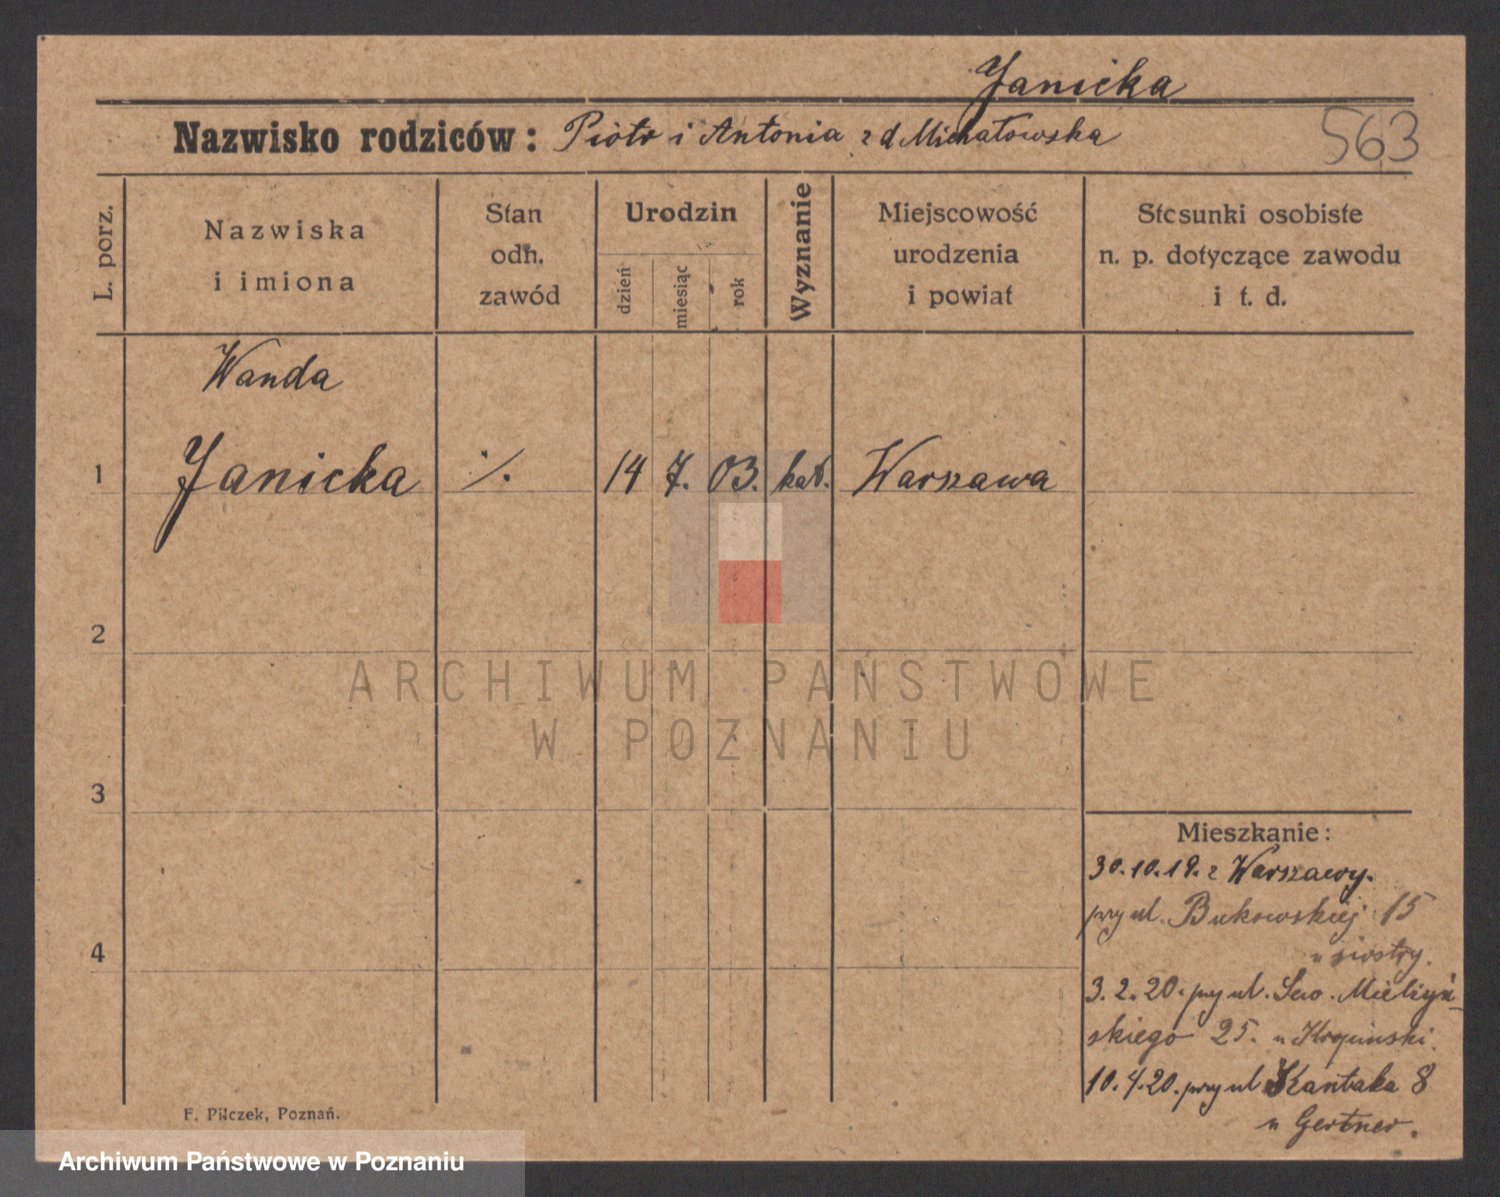 Janicka
Nazwisko rodziców: Piotr i Antonia z d Michałowska
563
L. porz.
Nazwiska
i imiona
Stan
odh.
zawód
Urodzin
dzień
miesiąc
rok
Wyznanie
Miejscowość
urodzenia
i powiat
Stosunki osobiste
n. p. dotyczące zawodu
i t. d.
Wanda
1 Janicka ·/. 14 7. 03. kat. Warszawa
2
3
4
ARCHIWUM PAŃSTWOWE
W POZNANIU
Mieszkanie:
30.10.19. z Warszawy.
przy ul. Bukowskiej 15
u siostry.
3.2.20. przy ul. Sew. Mielżyń-
skiego 25. u
10.4.20. przy ul. Kantaka 8
u Gertner.
F. Pilczek, Poznań.
Archiwum Państwowe w Poznaniu